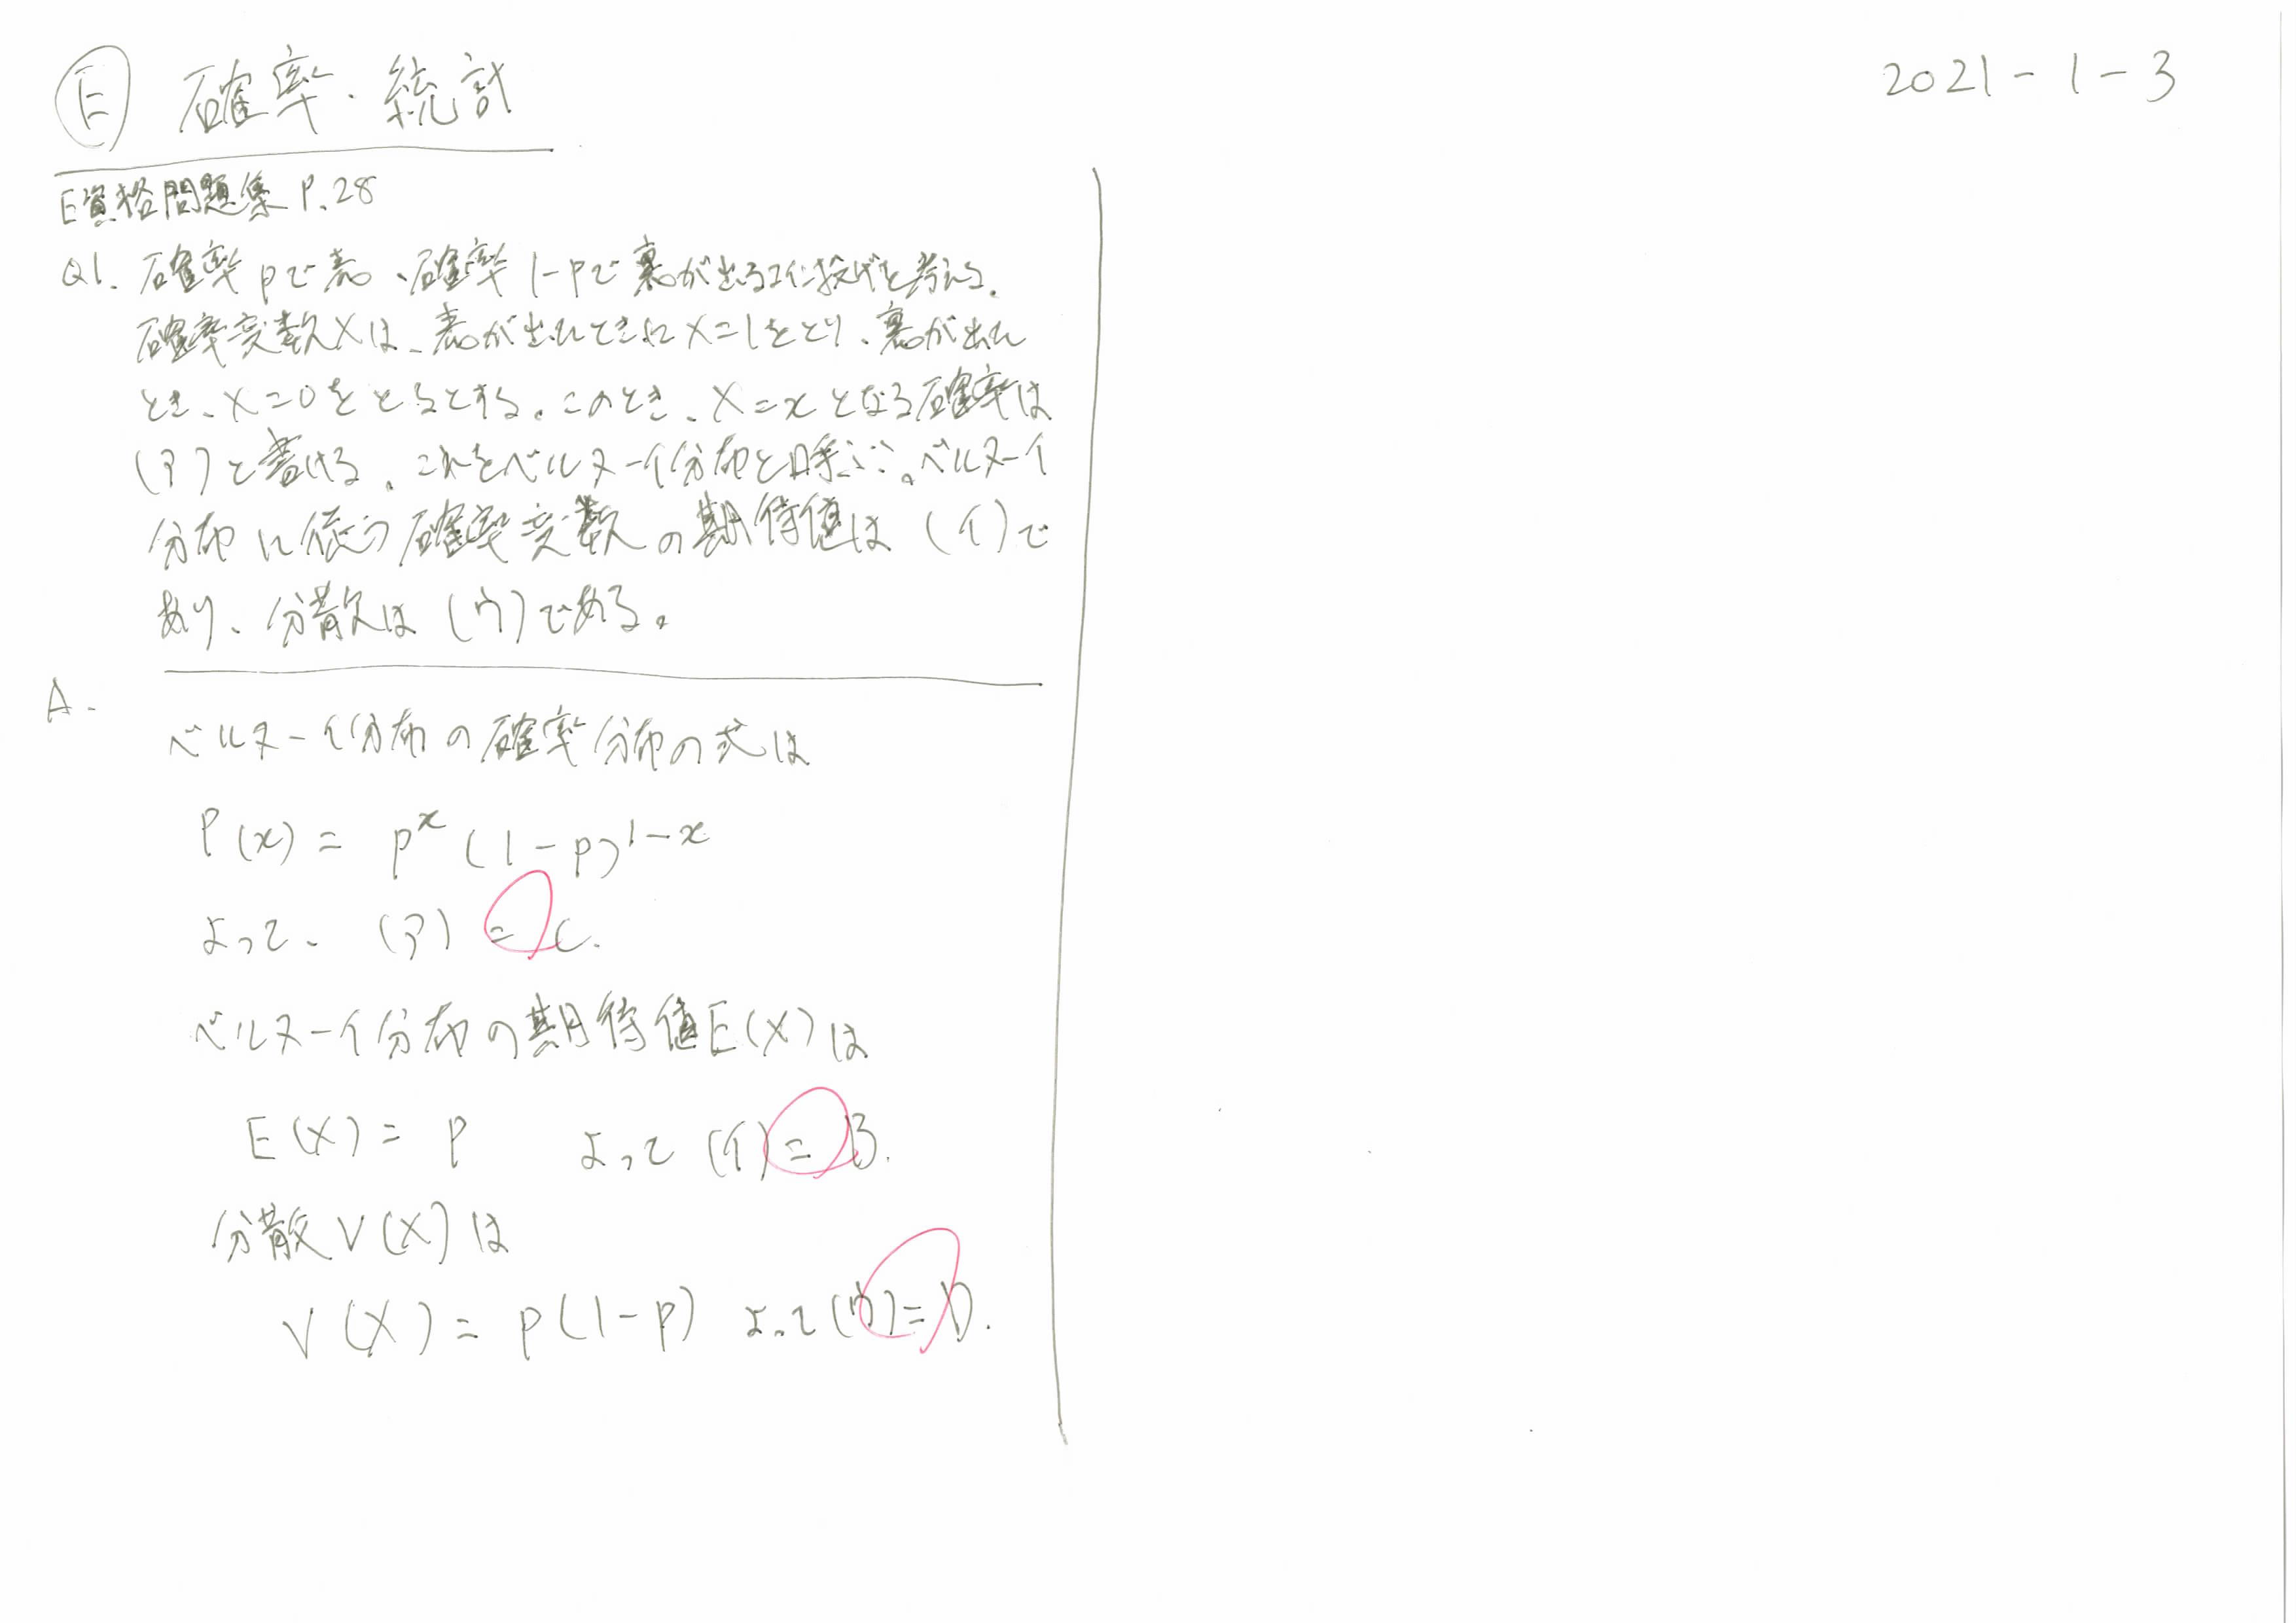 Ⓔ 確率・統計
2021-1-3
E資格問題集 P.28
Q1. 確率pで表、確率1-pで裏が出るコイン投げを考える。
確率変数Xは、表が出たときにX=1をとり、裏が出た
とき、X=0をとるとする。このとき、X=xとなる確率は
(ア)と書ける。これをベルヌーイ分布と呼ぶ。ベルヌーイ
分布に従う確率変数の期待値は(イ)で
あり、分散は(ウ)である。
A.
ベルヌーイ分布の確率分布の式は
P(x) = p^x (1-p)^1-x
よって、(ア) = C.
ベルヌーイ分布の期待値E(X)は
E(X) = p よって (イ) = B.
分散V(X)は
V(X) = p(1-p) よって(ウ)=D.